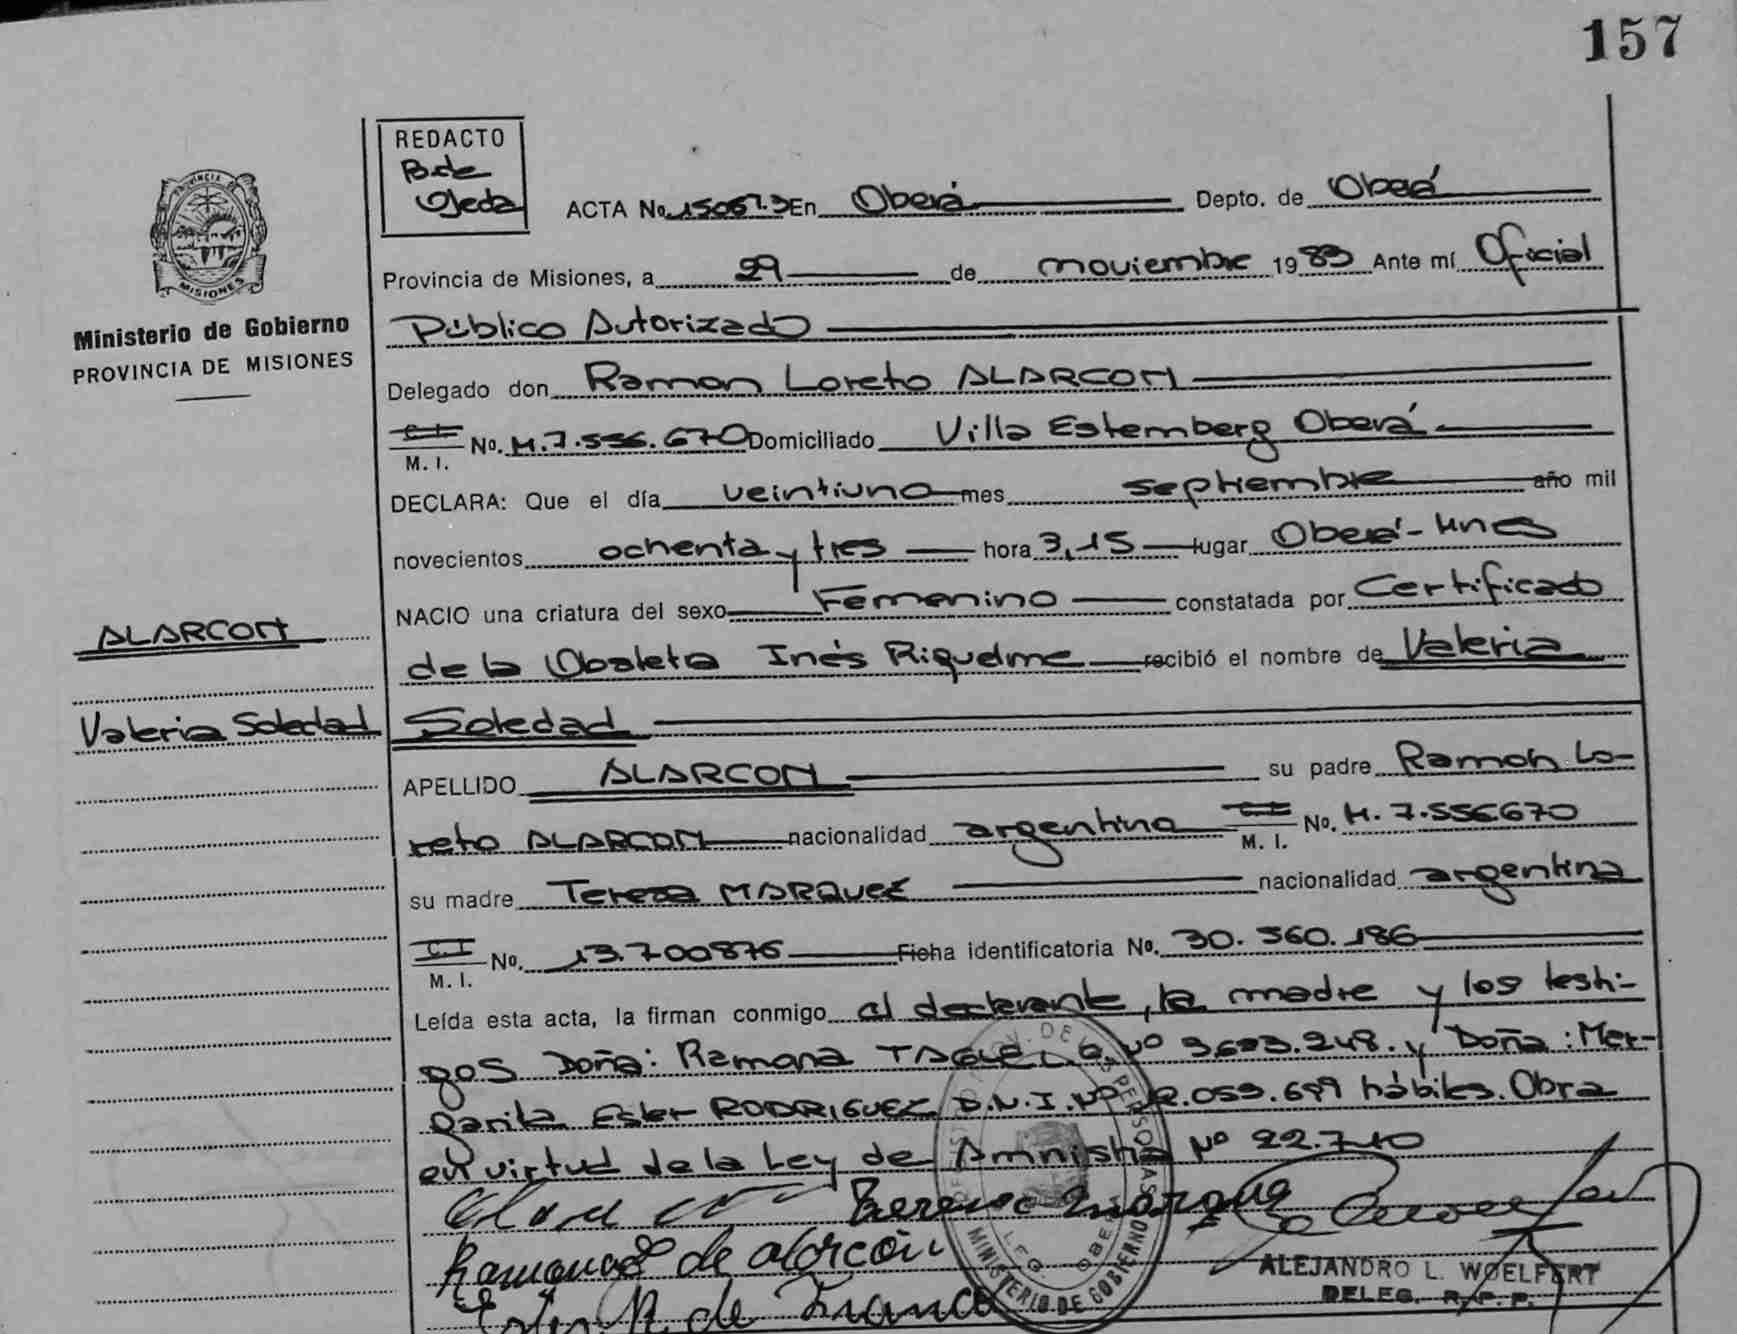 157
REDACTO
Bde
Ojeda
ACTA No. 15067.3 En Oberá Depto. de Oberá
Provincia de Misiones, a 29 de noviembre 1983 Ante mí Oficial
Público Autorizado
Delegado don Ramon Loreto ALARCON
C.I. M. I. No. M.7.556.670 Domiciliado Villa Estemberg Oberá
DECLARA: Que el día veintiuno mes septiembre año mil
novecientos ochenta y tres hora 3,15 lugar Oberá-Mnes
NACIO una criatura del sexo Femenino constatada por Certificado
de la Obsleta Inés Riquelme recibió el nombre de Valeria
Soledad
APELLIDO ALARCON su padre Ramon Lo-
reto ALARCON nacionalidad argentina C.I. M. I. No. M. 7.556670
su madre Teresa MARQUEZ nacionalidad argentina
C.I. M. I. No. 13.700876 Ficha identificatoria No. 30.360.186
Leída esta acta, la firman conmigo el declarante, la madre y los testi-
gos Doña: Ramona TAGLE Nº 9.693.248. y Doña: Mar-
garita Ester RODRIGUEZ D.N.I. Nº .059.699 hábiles. Obra
en virtud de la Ley de Amnistía Nº 22.710
Teresa Marque
Ramona de alarcon
Ester R. de Franco
ALEJANDRO L. WOELFERT
DELEG. R.P.P.
MINISTERIO DE GOBIERNO
PROVINCIA DE MISIONES
Ministerio de Gobierno
PROVINCIA DE MISIONES
ALARCON
Valeria Soledad